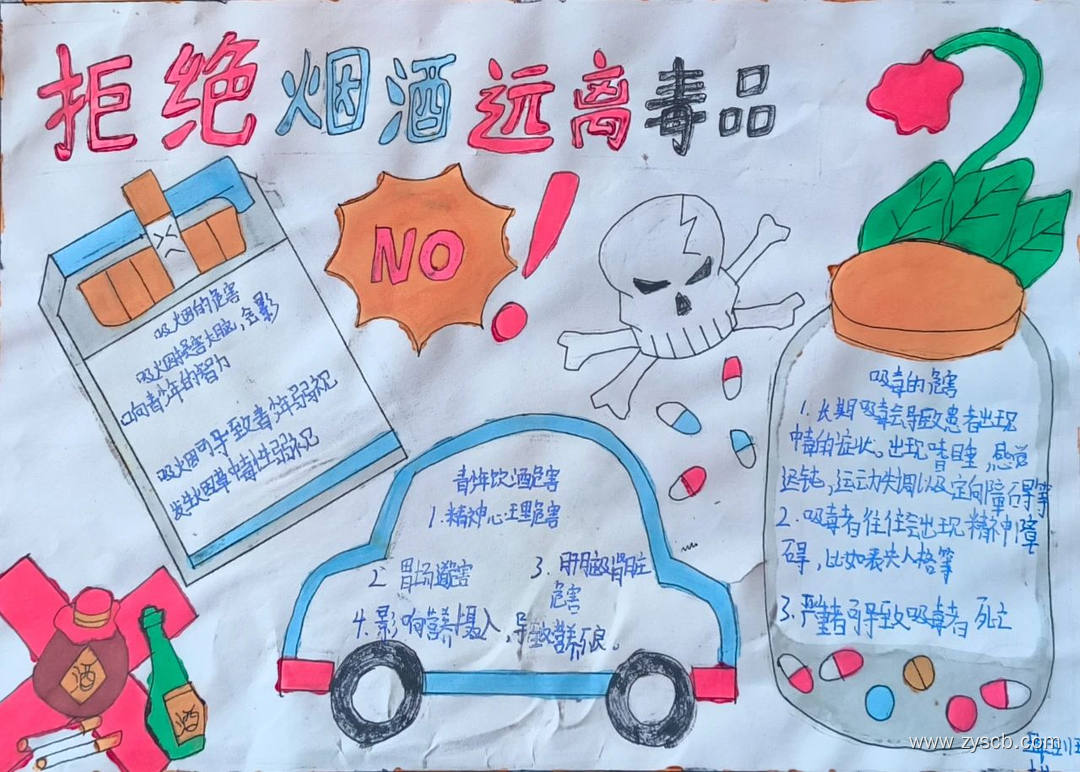 拒绝烟酒远离毒品
NO!
吸烟的危害
吸烟损害大脑,会影
响青少年的智力
吸烟可导致青少年弱视
发生烟草中毒性弱视
青少年饮酒危害
1.精神心理危害
2 胃肠道害
3.肝脏肾脏
危害
4.影响营养摄入,导致营养不良。
吸毒的危害
1.长期吸毒会导致患者出现
中毒的症状。出现嗜睡,感觉
迟钝,运动失调以及定向障碍等
2.吸毒者往往会出现精神障
碍,比如丧失人格等
3.严重者可导致吸毒者死亡
酒
酒
www.zyscb.com